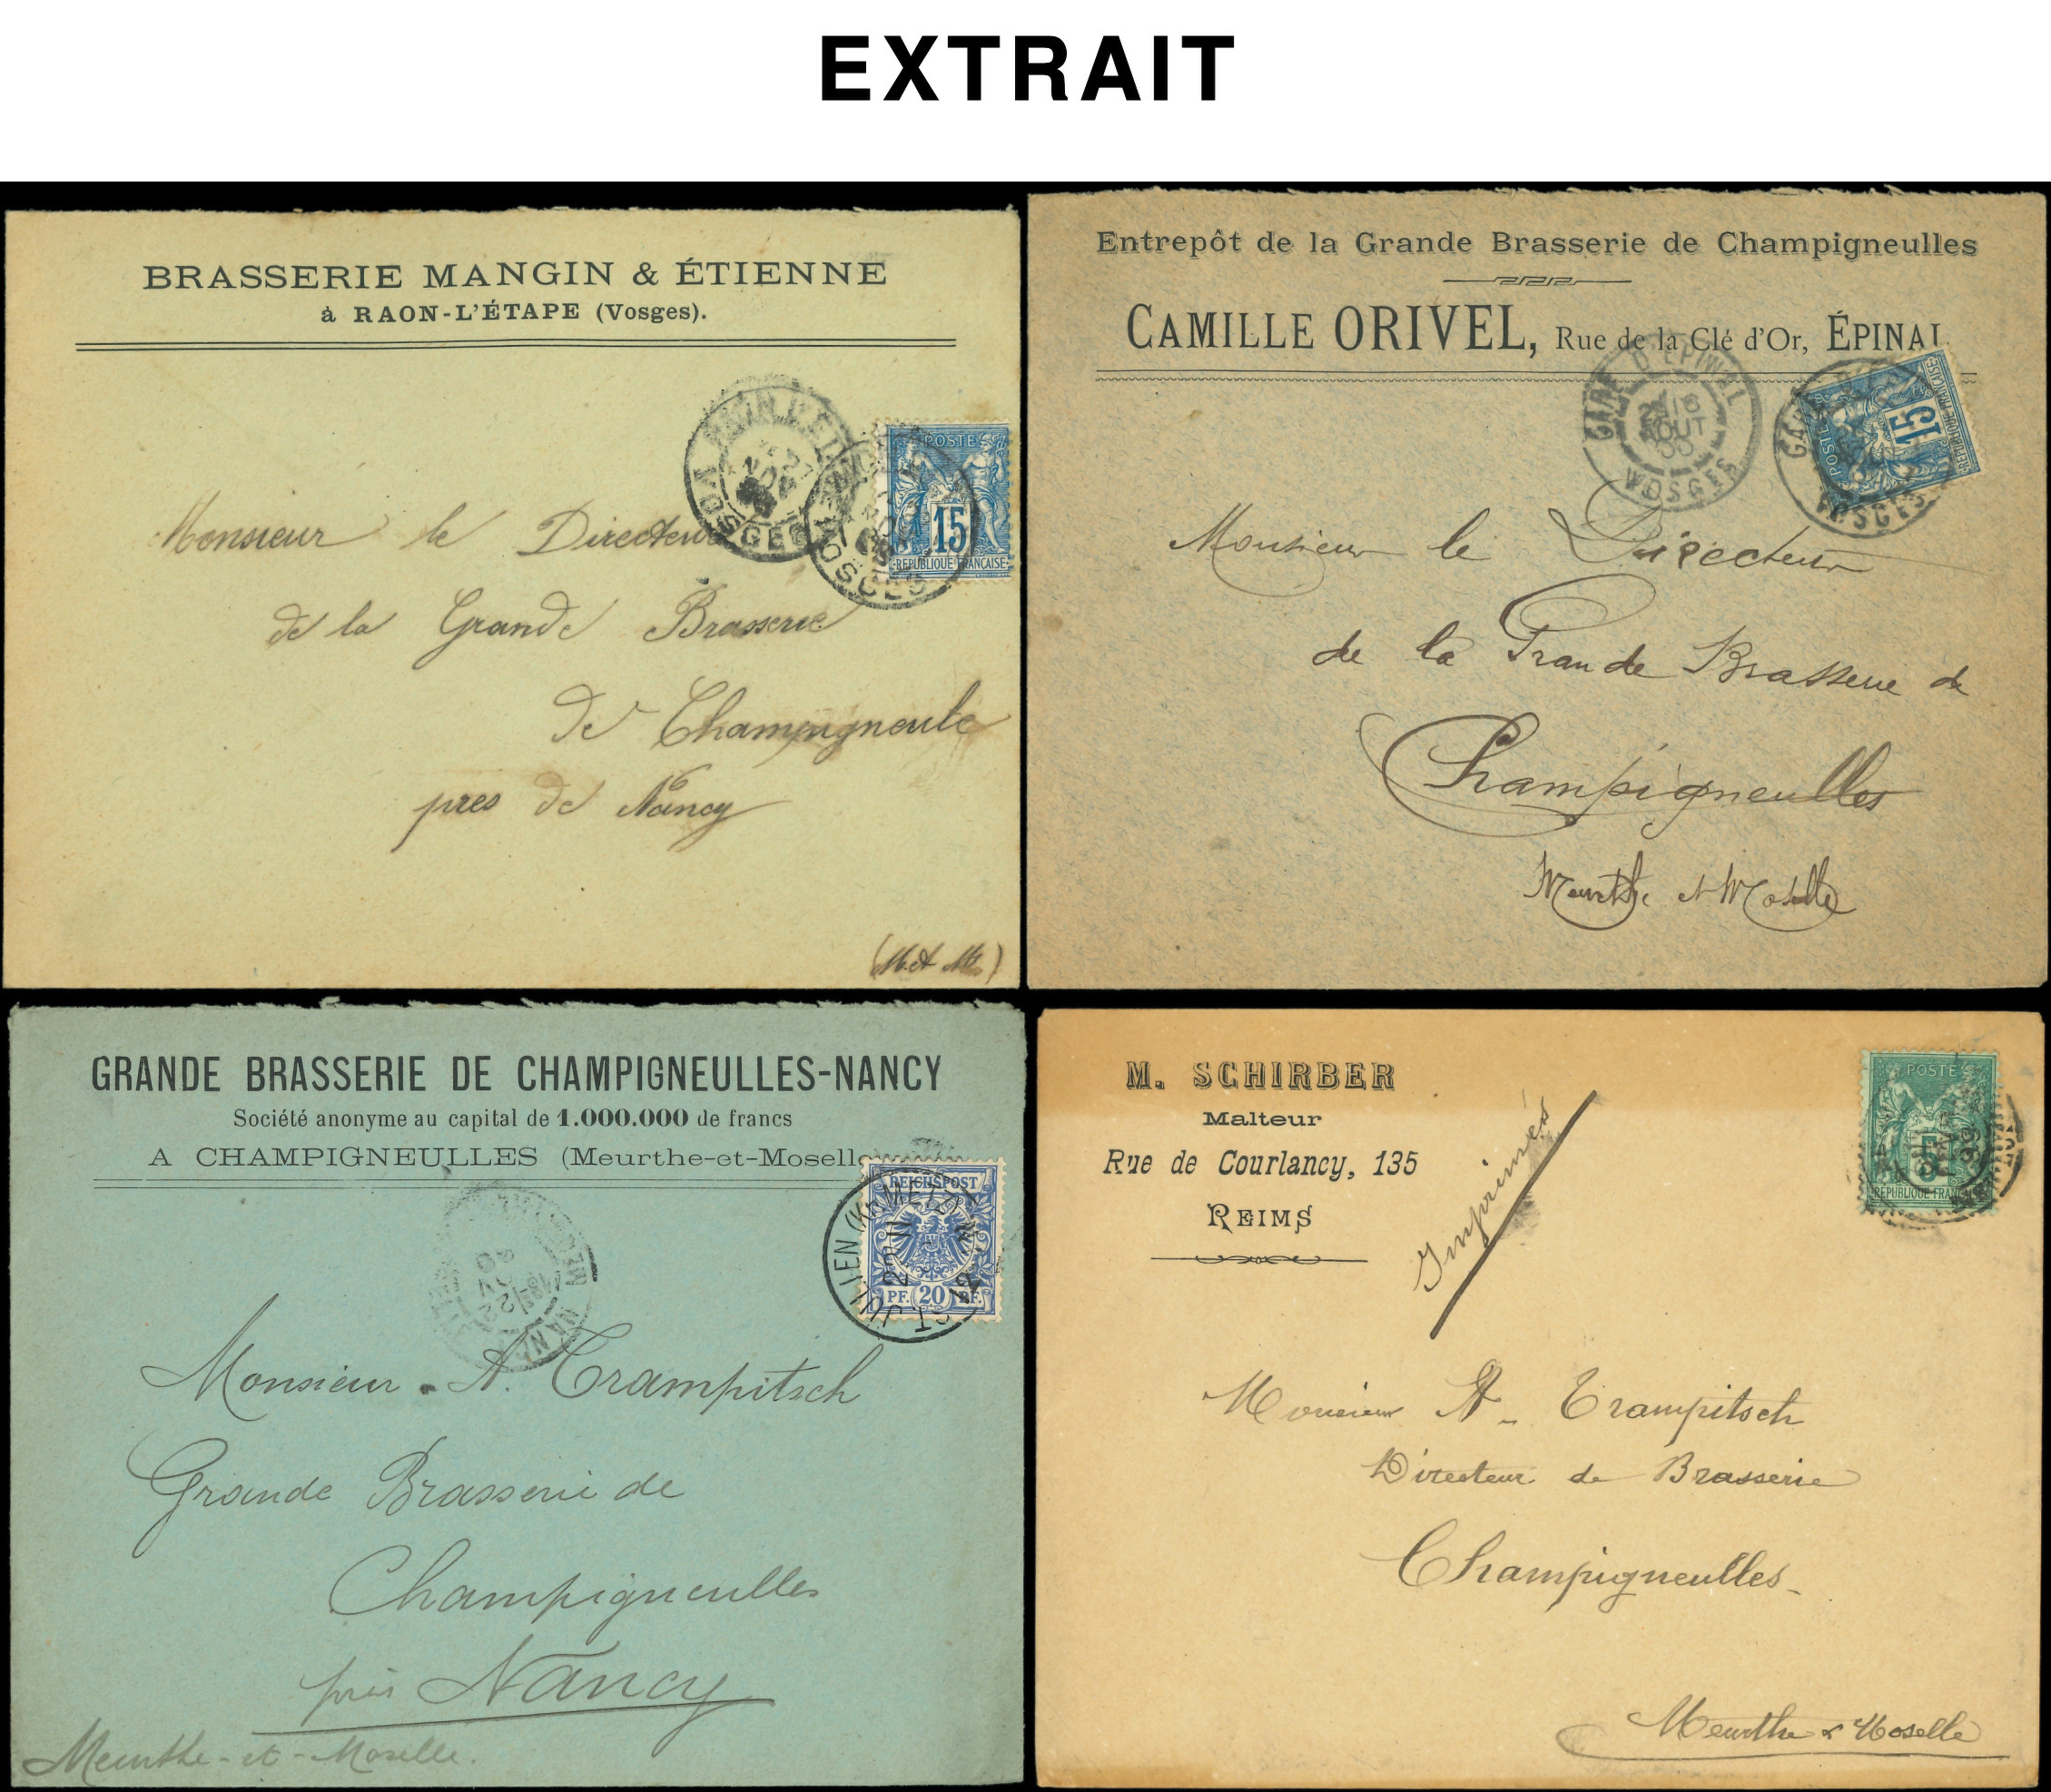 EXTRAIT
BRASSERIE MANGIN & ÉTIENNE
à RAON-L'ÉTAPE (Vosges).
POSTES
15
REPUBLIQUE FRANÇAISE
VOSGES
Monsieur le Directeur
de la Grande Brasserie
de Champigneule
près de Nancy
(M. et M.)
Entrepôt de la Grande Brasserie de Champigneulles
CAMILLE ORIVEL, Rue de la Clé d'Or, ÉPINAL
GARE D'EPINAL
18
AOUT
VOSGES
POSTES
15
REPUBLIQUE FRANÇAISE
VOSGES
Monsieur le Directeur
de la Grande Brasserie de
Champigneulles
Meurthe et Moselle
GRANDE BRASSERIE DE CHAMPIGNEULLES-NANCY
Société anonyme au capital de 1.000.000 de francs
A CHAMPIGNEULLES (Meurthe-et-Moselle
REICHSPOST
PF. 20 PF.
ST JULIEN (KR. METZ)
Monsieur A. Trampitsch
Grande Brasserie de
Champigneulles
près Nancy
Meurthe-et-Moselle.
M. SCHIRBER
Malteur
Rue de Courlancy, 135
REIMS
Imprimés
POSTES
5
REPUBLIQUE FRANÇAISE
Monsieur A. Trampitsch
Directeur de Brasserie
Champigneulles
Meurthe & Moselle